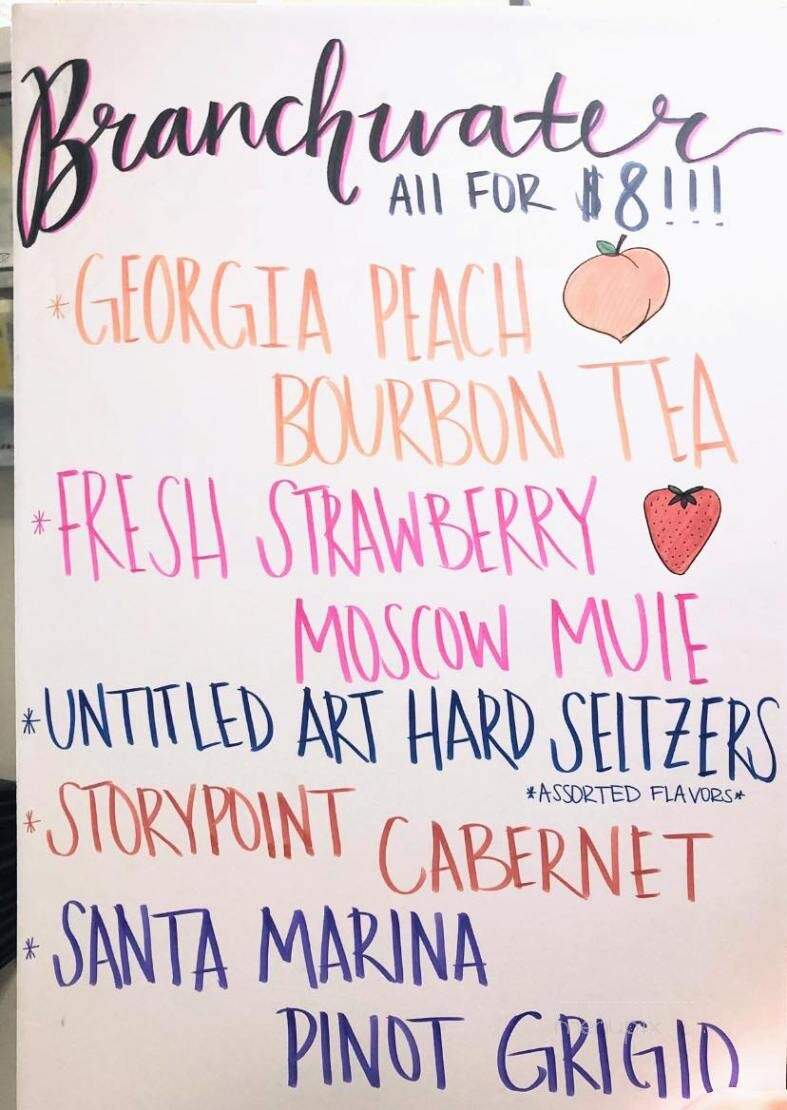 Branchwater
All FOR $8!!!
*GEORGIA PEACH
BOURBON TEA
*FRESH STRAWBERRY
MOSCOW MULE
*UNTITLED ART HARD SELTZERS
*ASSORTED FLAVORS*
*STORYPOINT
CABERNET
*SANTA MARINA
PINOT GRIGIO
menupix